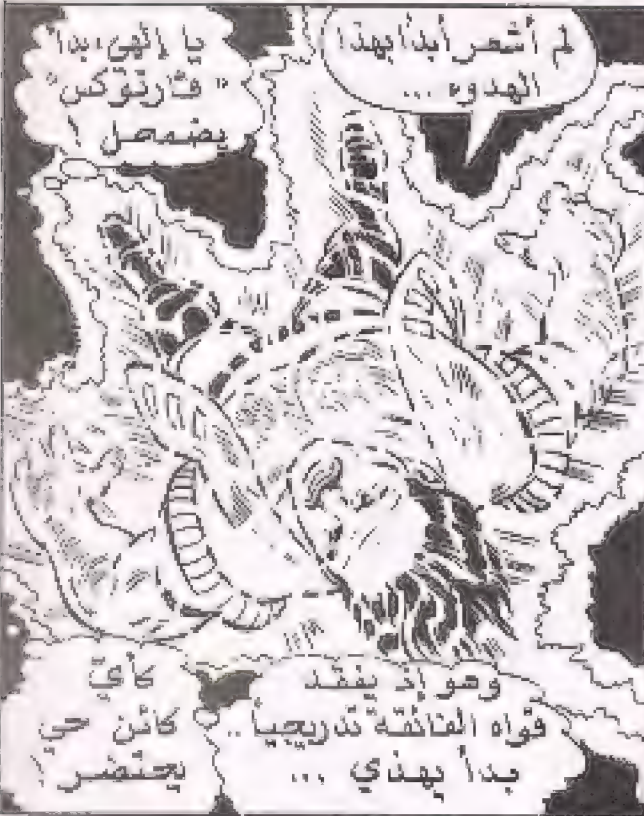 لم أشعر أبداً بهذا
الهدوء ...
يا إلهي، بدأ
"فارتوكس"
يضمحل !
وهو إذ يفقد
قواه الفائقة تدريجياً ..
بدأ يهذي ...
كأيّ
كائن حي
يحتضر !